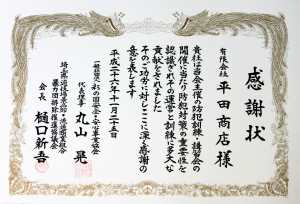 感謝状
有限会社
平田商店様
貴社は当会主催の防犯訓練・講習会の
開催に当たり防犯対策の重要性を
認識されその運営と訓練に多大な
貢献をされました
そのご功労に対しここに深く感謝の
意を表します
平成二十六年十一月二十五日
代表理事 丸山 晃
埼玉県遊技場景品卸・流通商業組合
暴力団排除推進協議会
会長 樋口新吾